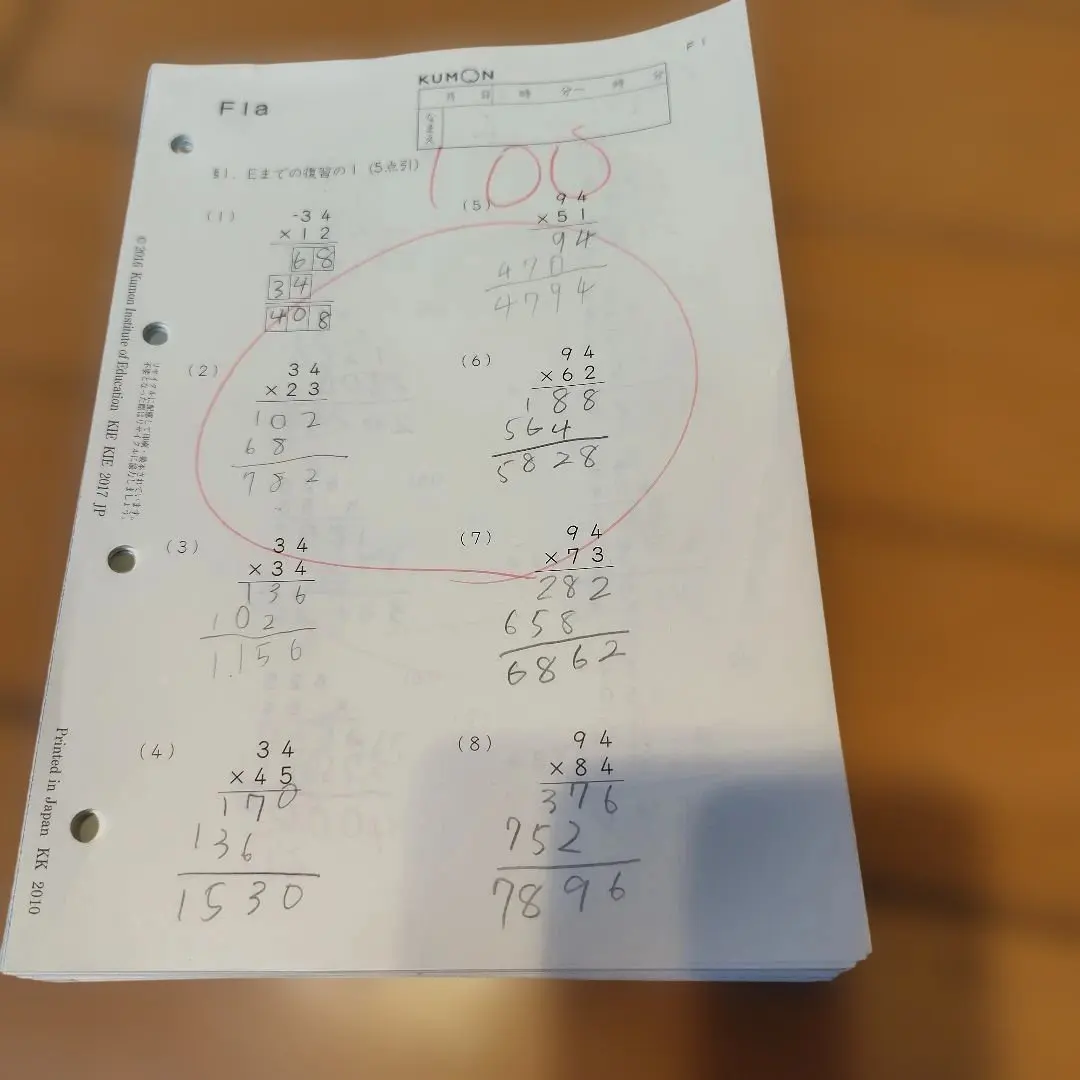 F 1
KUMON
F1a
月 日 時 分〜 時 分
なまえ
§1. Eまでの復習の1 (5点引)
100
(1)
34
×12
68
34
408
(2)
34
×23
102
68
782
(3)
34
×34
136
102
1156
(4)
34
×45
170
136
1530
(5)
94
×51
94
470
4794
(6)
94
×62
188
564
5828
(7)
94
×73
282
658
6862
(8)
94
×84
376
752
7896
© 2016 Kumon Institute of Education KIE KIE 2017 JP
Printed in Japan KK 2010